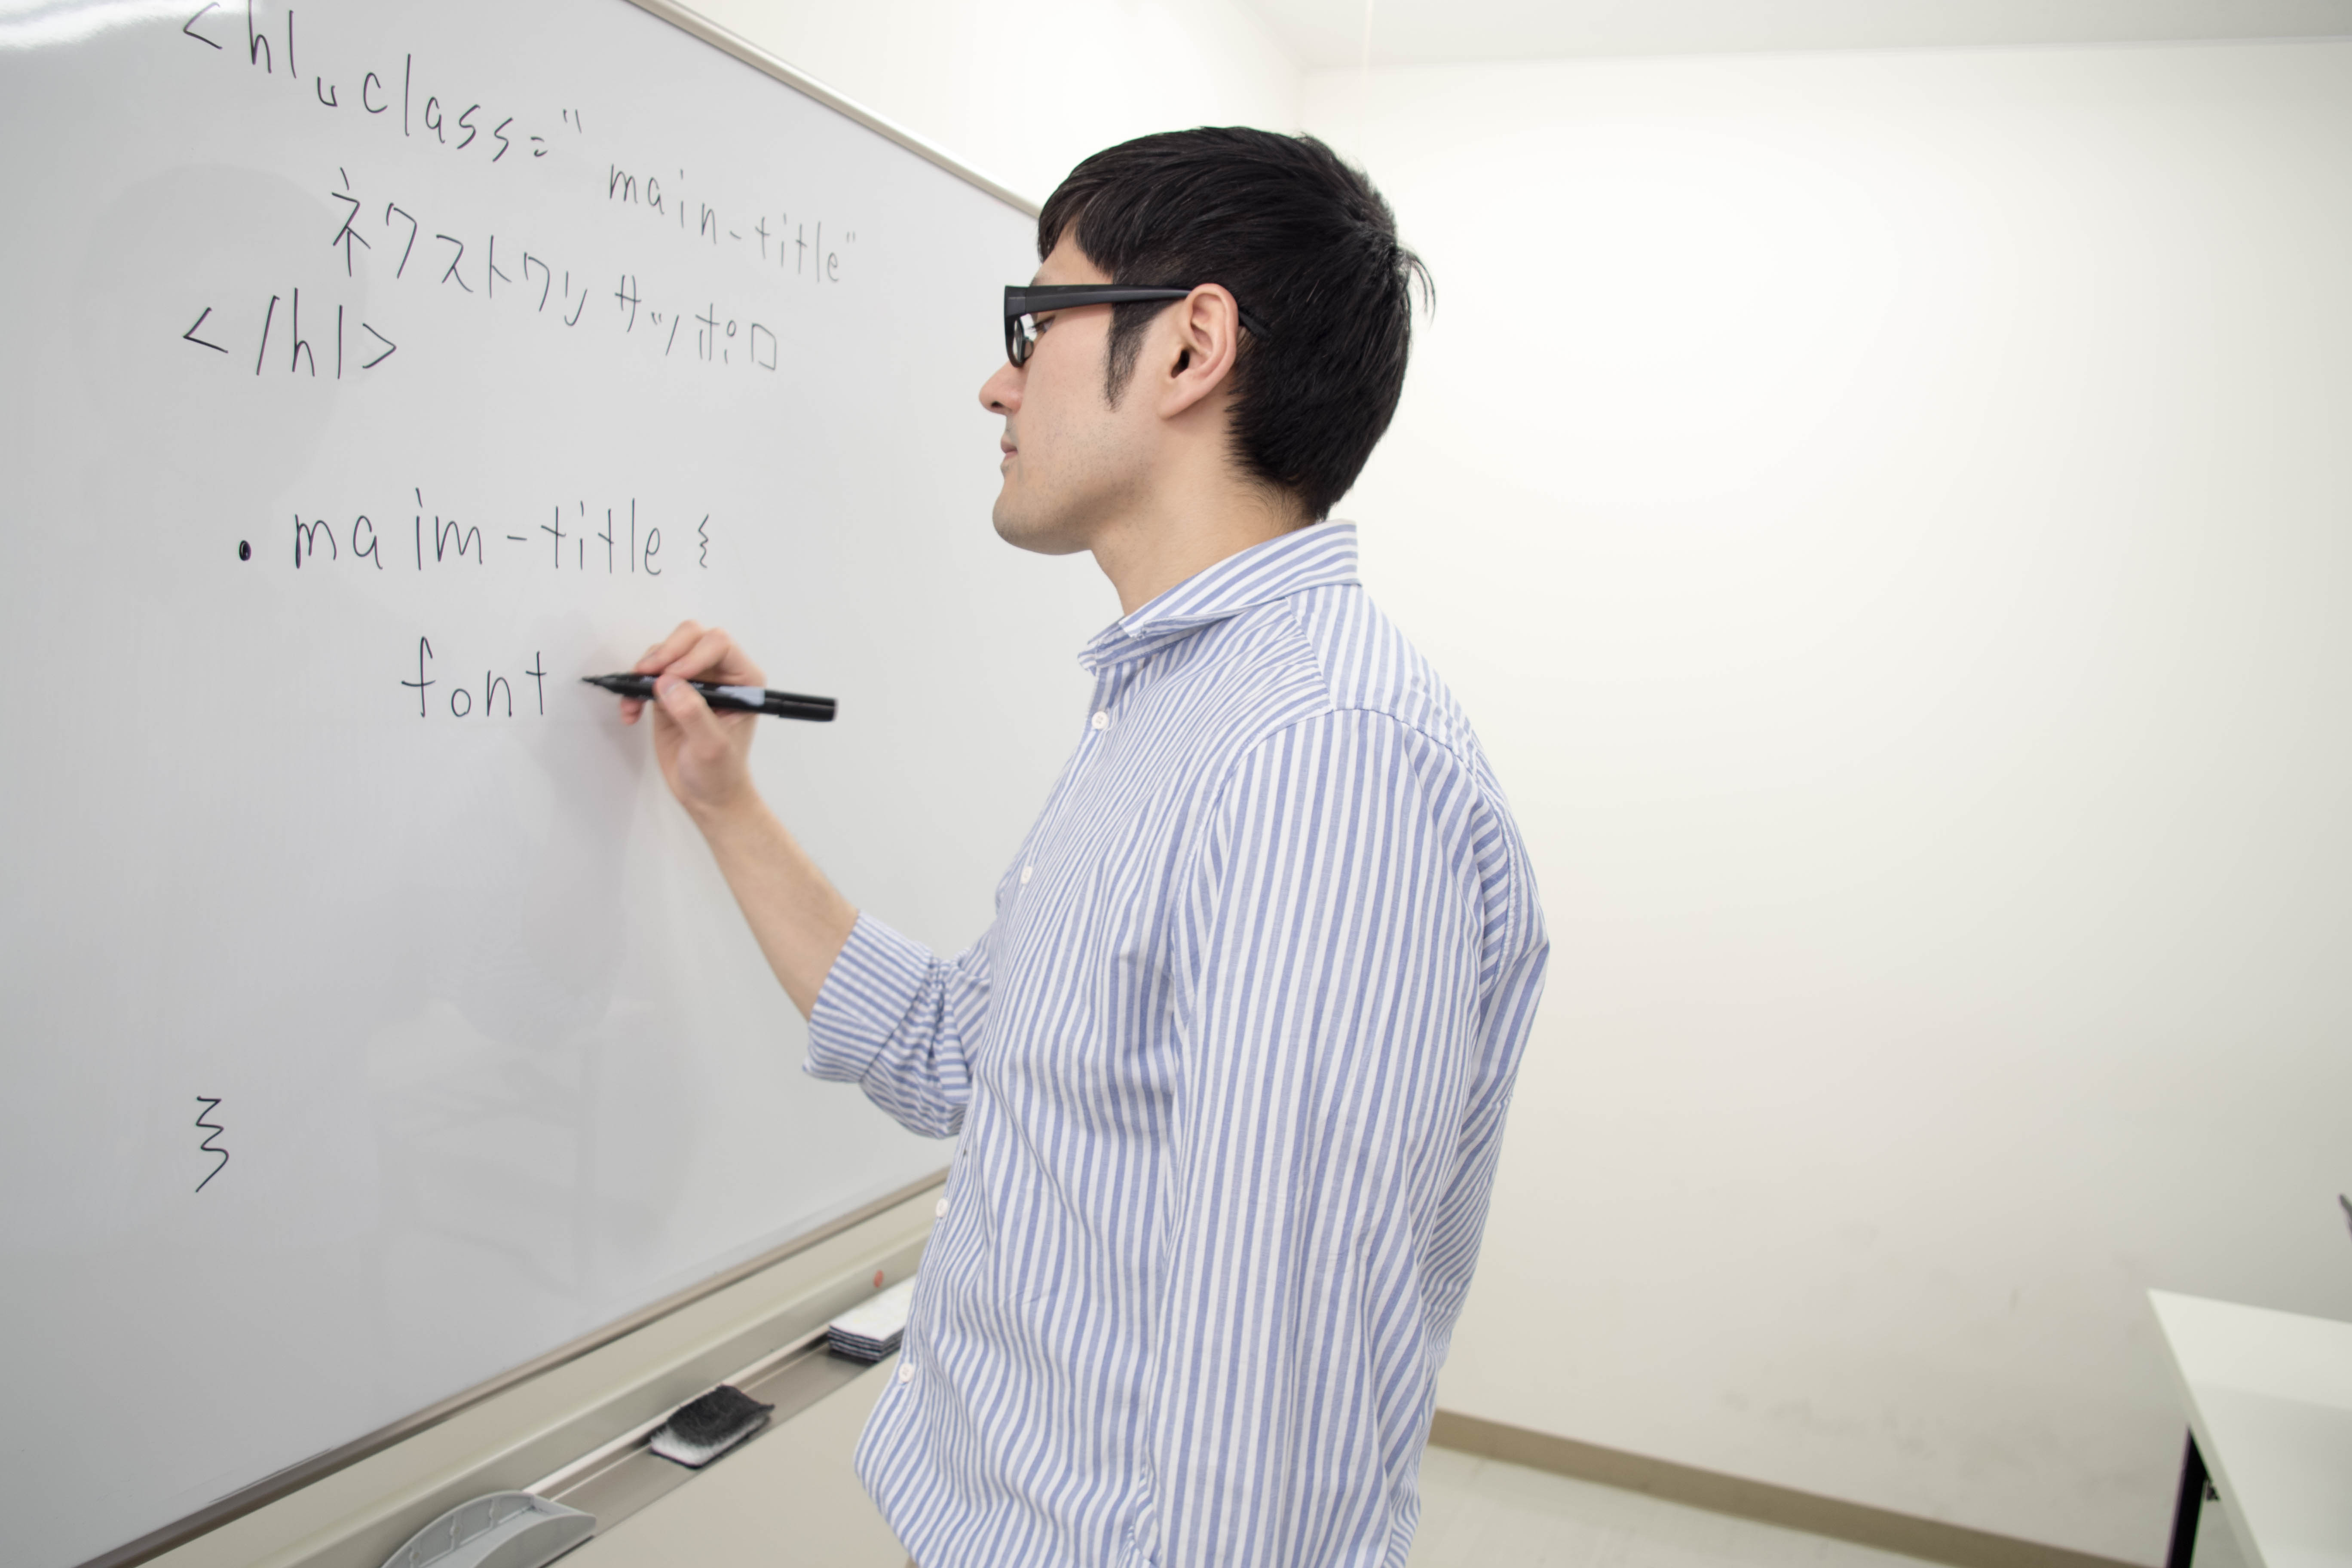 <h1␣class="main-title"
ネクストワリサッポロ
</h1>
.maim-title {
font
}